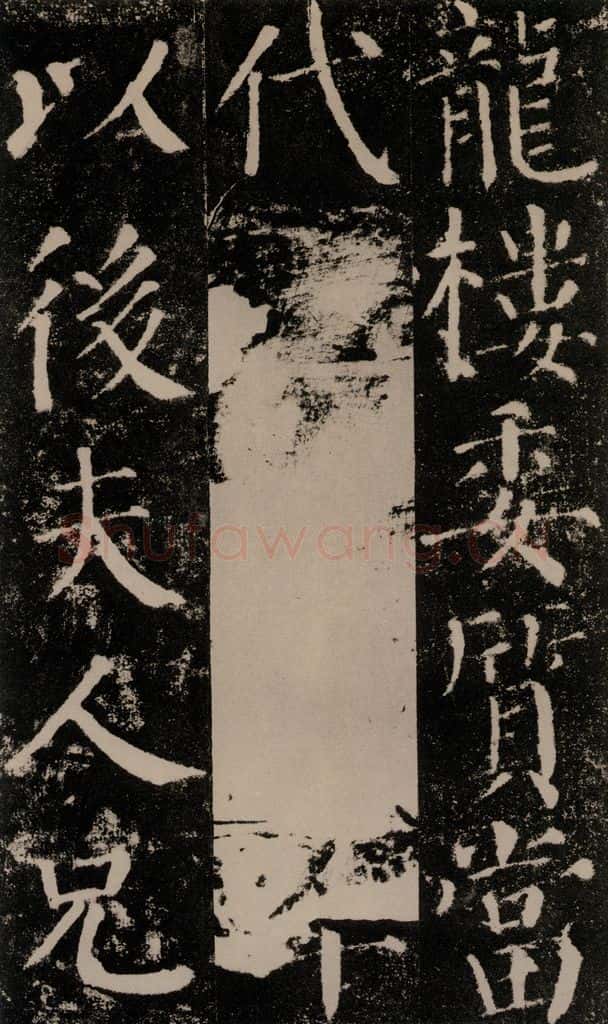 龍樓委質當
代
以後夫人兄
Shufawang.cn